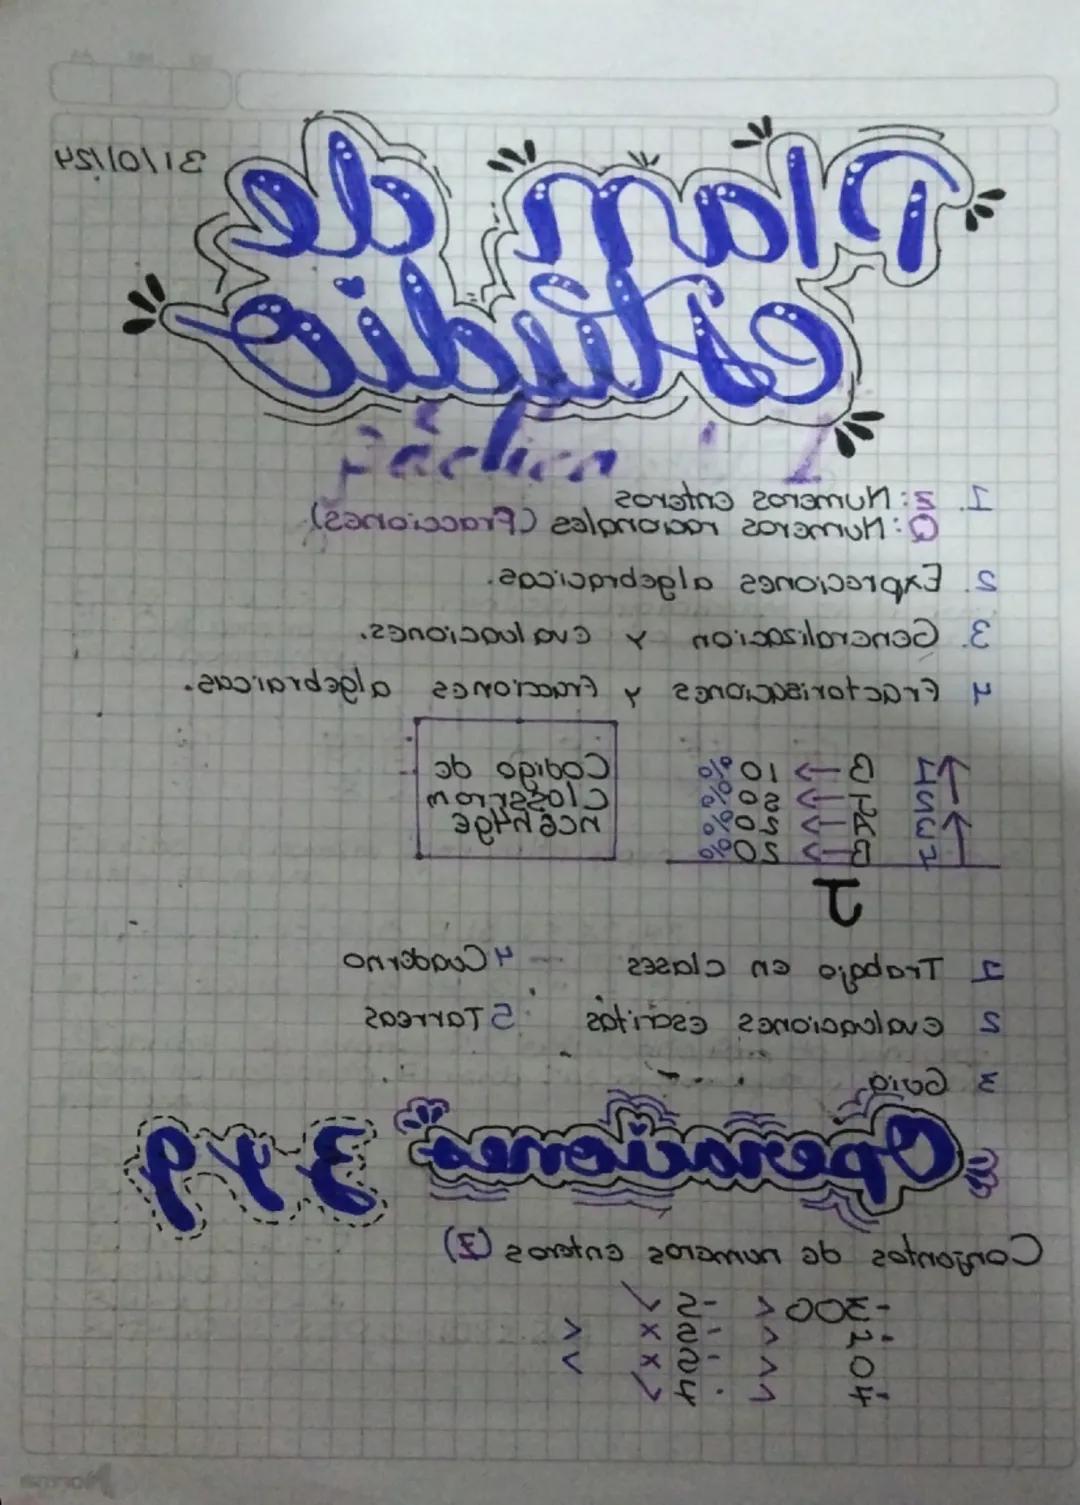 31/01/24
Plan de
estudio
Página 1
1. Z: Numeros enteros
Q: Numeros racionales (Fracciones)
2. Expreciones algebraicas.
3. Generalisacion y evaluaciones.
4 Fractorisaciones y fracciones algebraicas.
1 B → 10 %
2 → 20 %
3 → 20 %
4 B → 20 %
Codigo de
clossrrom
nce
1 Trabajo en clases 4 Cuaderno
2 evaluaciones escritas 5 Tarreas
3 Guia
Operaciones 3 y 9
Conjontos de numeros enteros (Z)
-300 < -2 ✓
< x <
0 < x >
< ✓
Norma